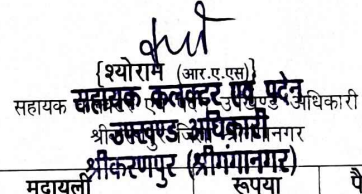 {श्योराम (आर.ए.एस)}
सहायक कलक्टर एवं पदेन उपखण्ड अधिकारी
सहायक कलक्टर एवं पदेन
उपखण्ड अधिकारी
श्रीकरणपुर (श्रीगंगानगर)
मुदायली रूपया